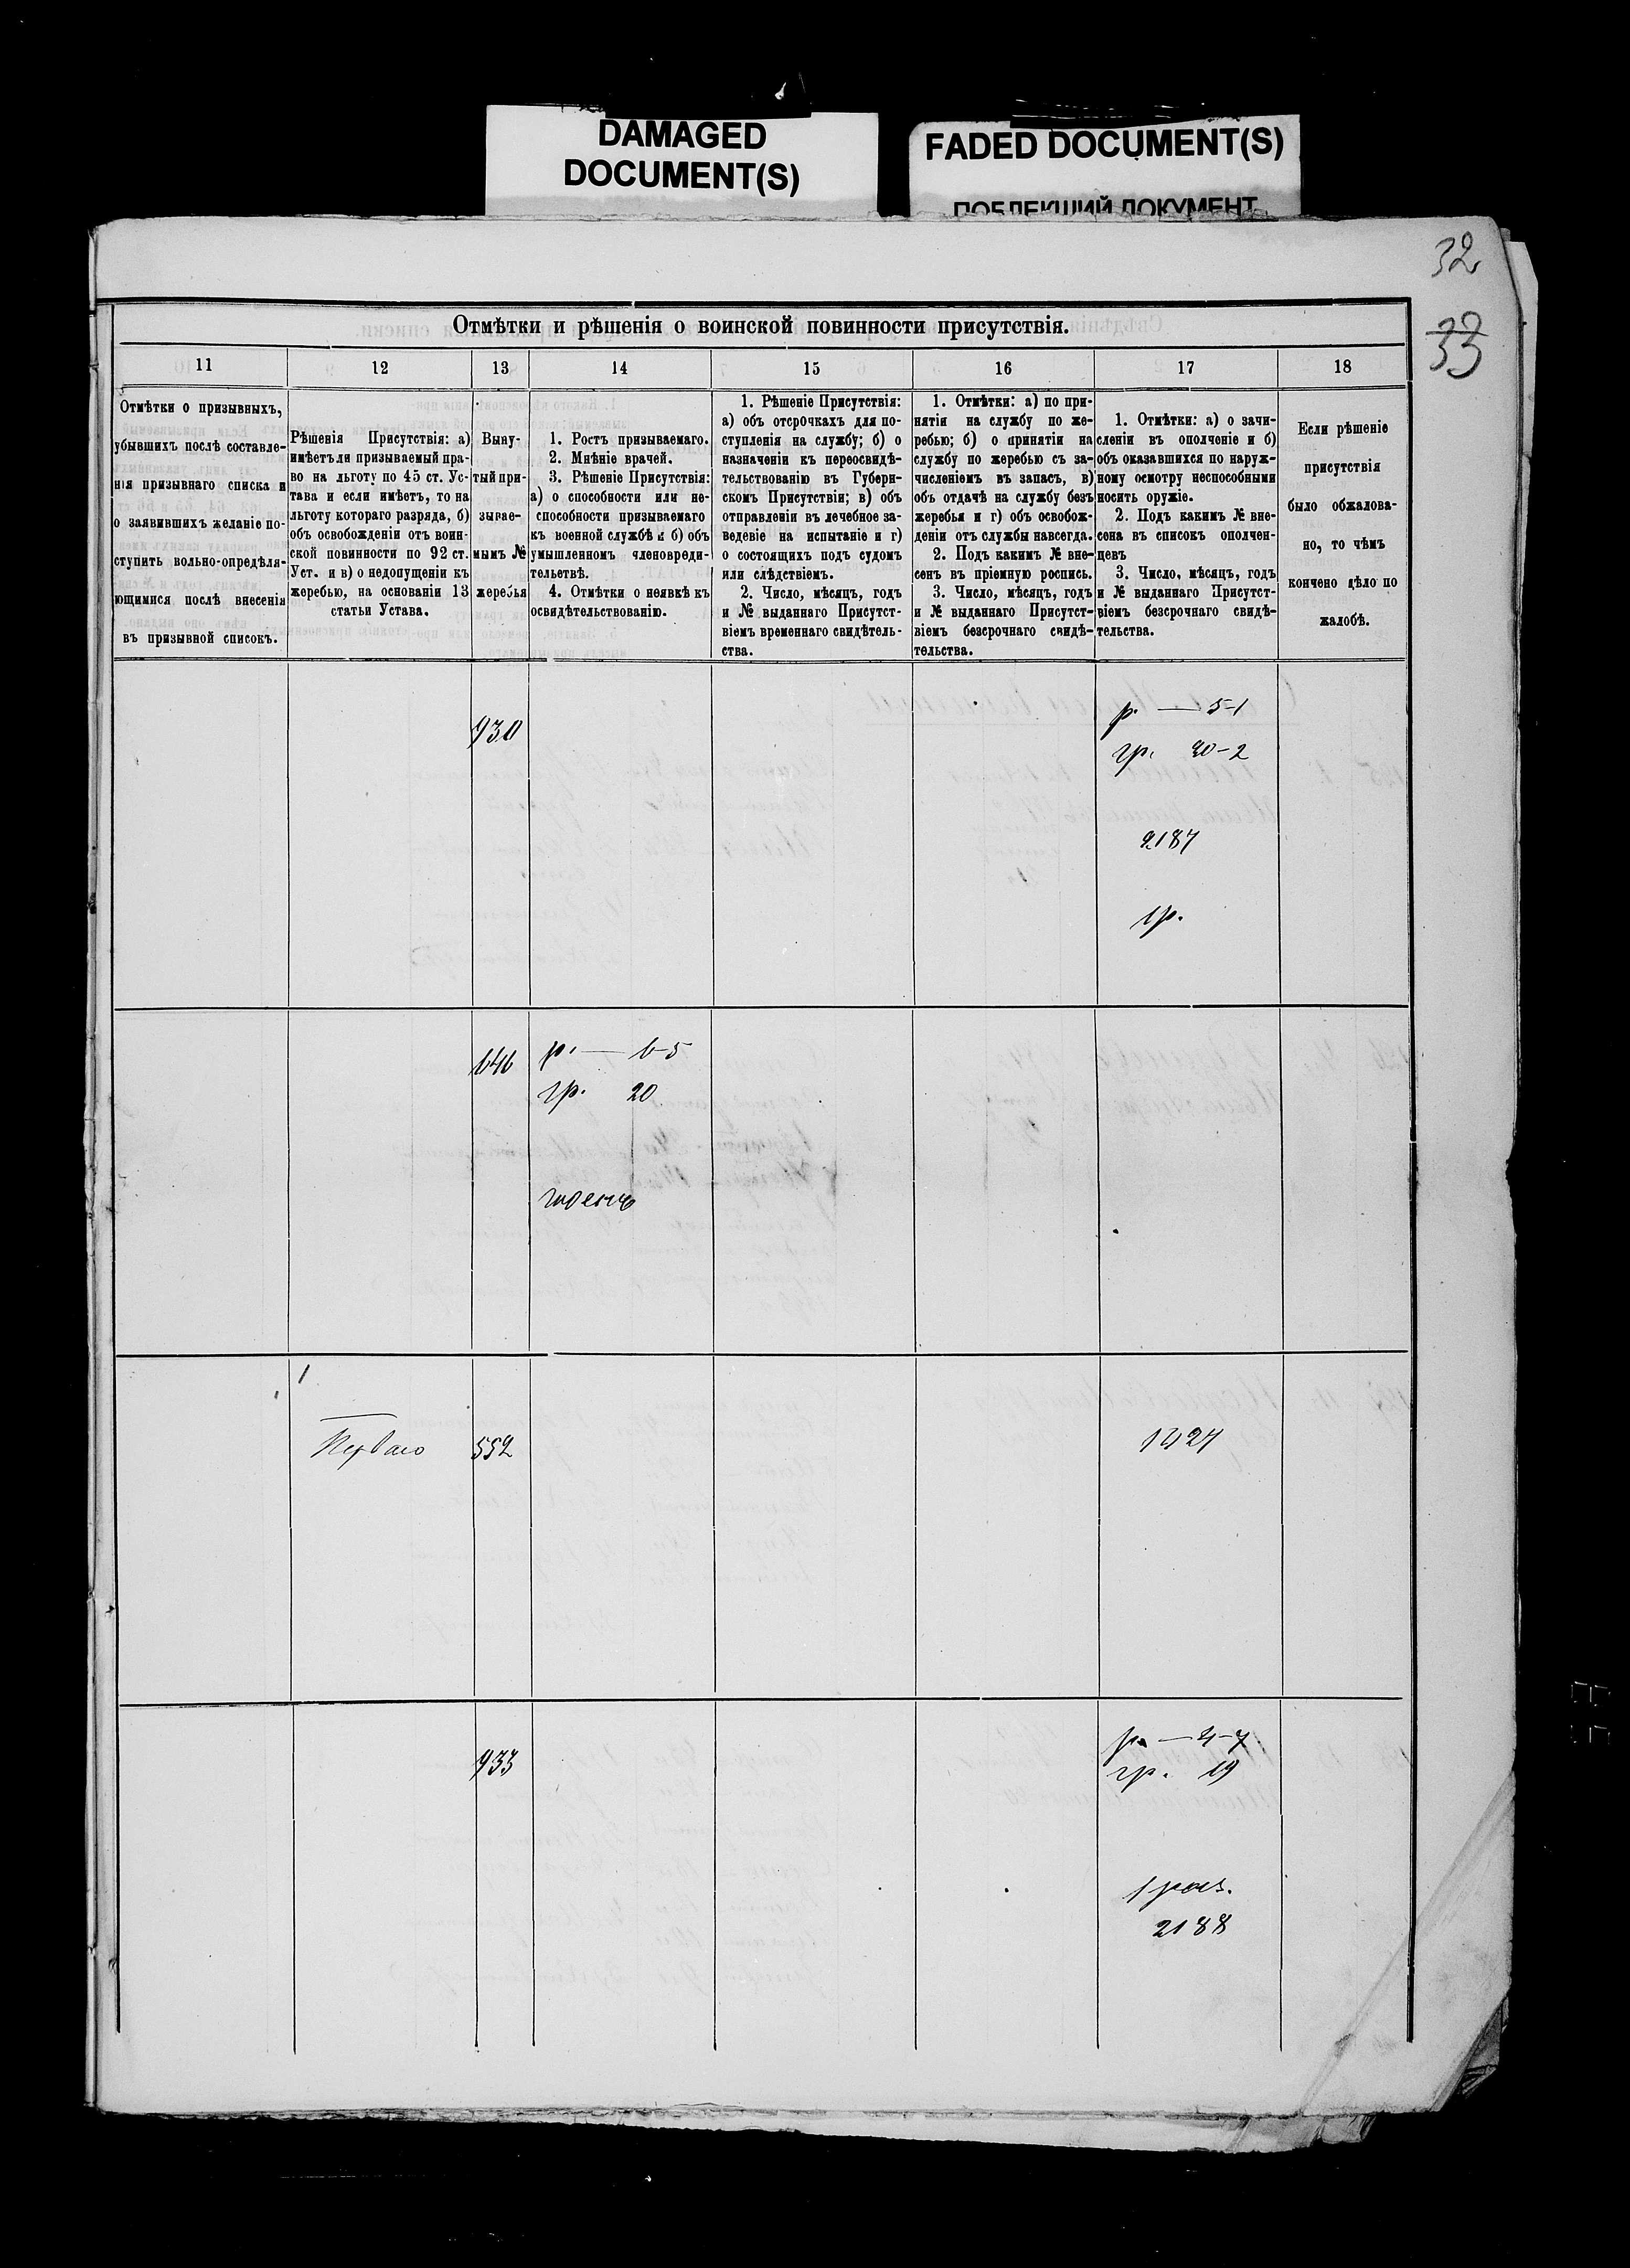 DAMAGED
DOCUMENT(S)
FADED DOCUMENT(S)
ПОБЛЕКШИЙ ДОКУМЕНТ
32
33
Отмѣтки и рѣшенія о воинской повинности присутствія.
11
12
13
14
15
16
17
18
Отмѣтки о призывныхъ,
убывшихъ послѣ составле-
нія призывнаго списка и
о заявившихъ желаніе по-
ступить вольно-опредѣля-
ющимися послѣ внесенія
въ призывной списокъ.
Рѣшенія Присутствія: а)
имѣетъ ли призываемый пра-
во на льготу по 45 ст. Ус-
тава и если имѣетъ, то на
льготу котораго разряда, б)
объ освобожденіи отъ воин-
ской повинности по 92 ст.
Уст. и в) о недопущеніи къ
жеребью, на основаніи 13
статьи Устава.
Выну-
тый при-
зывае-
мымъ №
жеребья
1. Ростъ призываемаго.
2. Мнѣніе врачей.
3. Рѣшеніе Присутствія:
а) о способности или не-
способности призываемаго
къ военной службѣ и б) объ
умышленномъ членовреди-
тельетвѣ.
4. Отмѣтки о неявкѣ къ
освидѣтельствованію.
1. Рѣшеніе Присутствія:
а) объ отсрочкахъ для по-
ступленія на службу; б) о
назначеніи къ переосвидѣ-
тельствованію въ Губерн-
скомъ Присутствіи; в) объ
отправленіи въ лечебное за-
ведевіе на испытаніе и г)
о состоящихъ подъ судомъ
или слѣдствіемъ.
2. Число, мѣсяцъ, годъ
и № выданнаго Присутст-
віемъ временнаго свидѣтель-
ства.
1. Отмѣтки: а) по при-
нятіи на службу по же-
ребью; б) о принятіи на
службу по жеребью съ за-
численіемъ въ запасъ, в)
объ отдачѣ на службу безъ
жеребья и г) объ освобож-
деніи отъ службы навсегда.
2. Подъ какимъ № вне-
сенъ въ пріемную роспись.
3. Число, мѣсяцъ, годъ
и № выданнаго Присутст-
віемъ безсрочнаго свидѣ-
тельства.
1. Отмѣтки: а) о зачи-
сленіи въ ополченіе и б)
объ оказавшихся по наруж-
ному осмотру неспособными
носить оружіе.
2. Подъ какимъ № вне-
сена въ списокъ ополчен-
цевъ
3. Число, мѣсяцъ, годъ
и № выданнаго Присутст-
віемъ безсрочнаго свидѣ-
тельства.
Если рѣшеніе
присутствія
было обжалова-
но, то чѣмъ
кончено дѣло по
жалобѣ.
930
р. — 5-1
гр. 20-2
2187
1р.
646
р. — 6-5
гр. 20
годенъ
Перваго
552
1927
933
р. — 4-7
гр. 19
1 раз.
2188